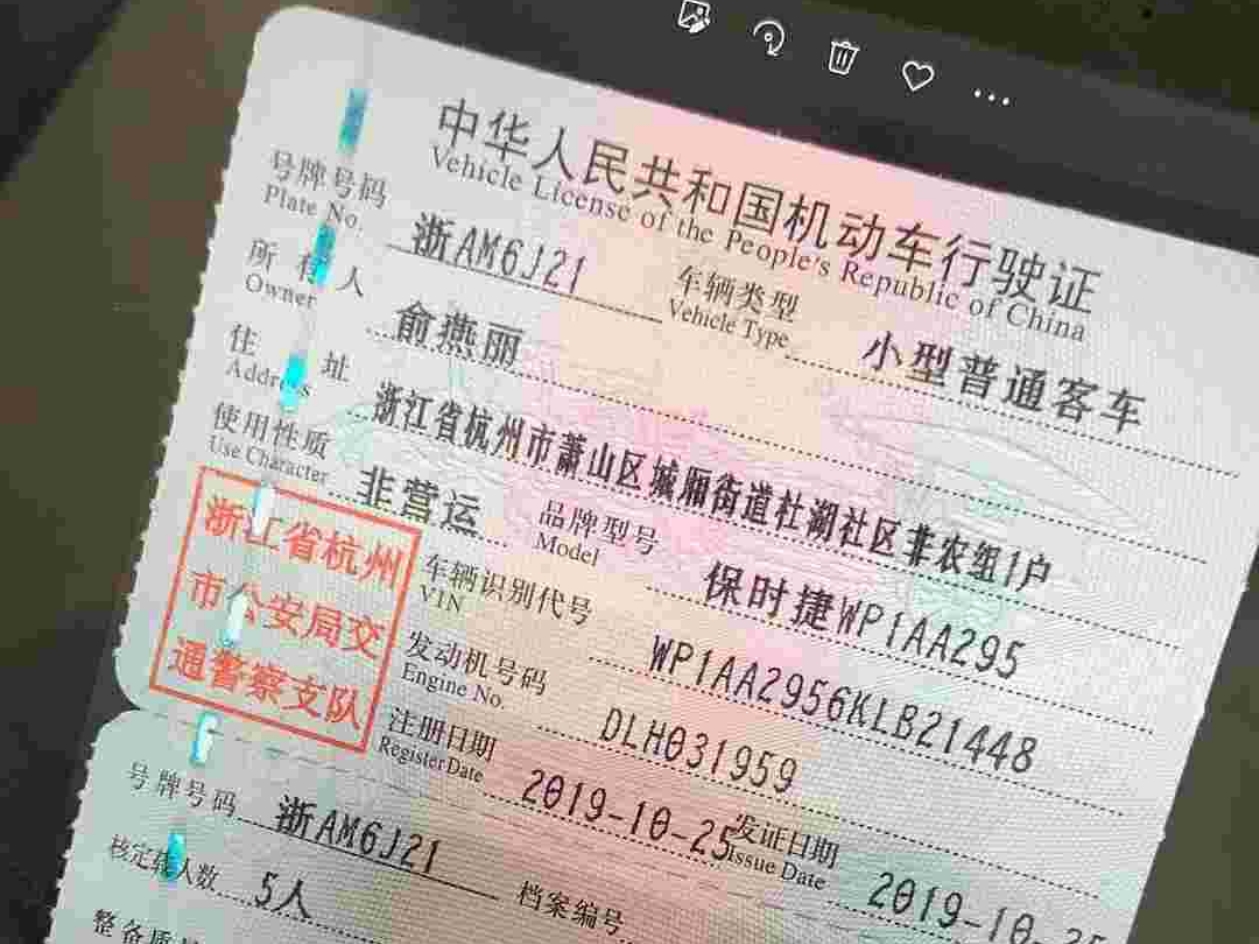 中华人民共和国机动车行驶证
Vehicle License of the People's Republic of China
号牌号码 浙AM6J21 车辆类型 小型普通客车
Plate No. Vehicle Type
所有人 俞燕丽
Owner
住址 浙江省杭州市萧山区城厢街道杜湖社区非农组1户
Address
使用性质 非营运 品牌型号 保时捷WP1AA295
Use Character Model
浙江省杭州
市公安局交
通警察支队
车辆识别代号 WP1AA2956KLB21448
VIN
发动机号码 DLH031959
Engine No.
注册日期 2019-10-25 发证日期 2019-10-25
Register Date Issue Date
号牌号码 浙AM6J21 档案编号
核定载人数 5人
整备质